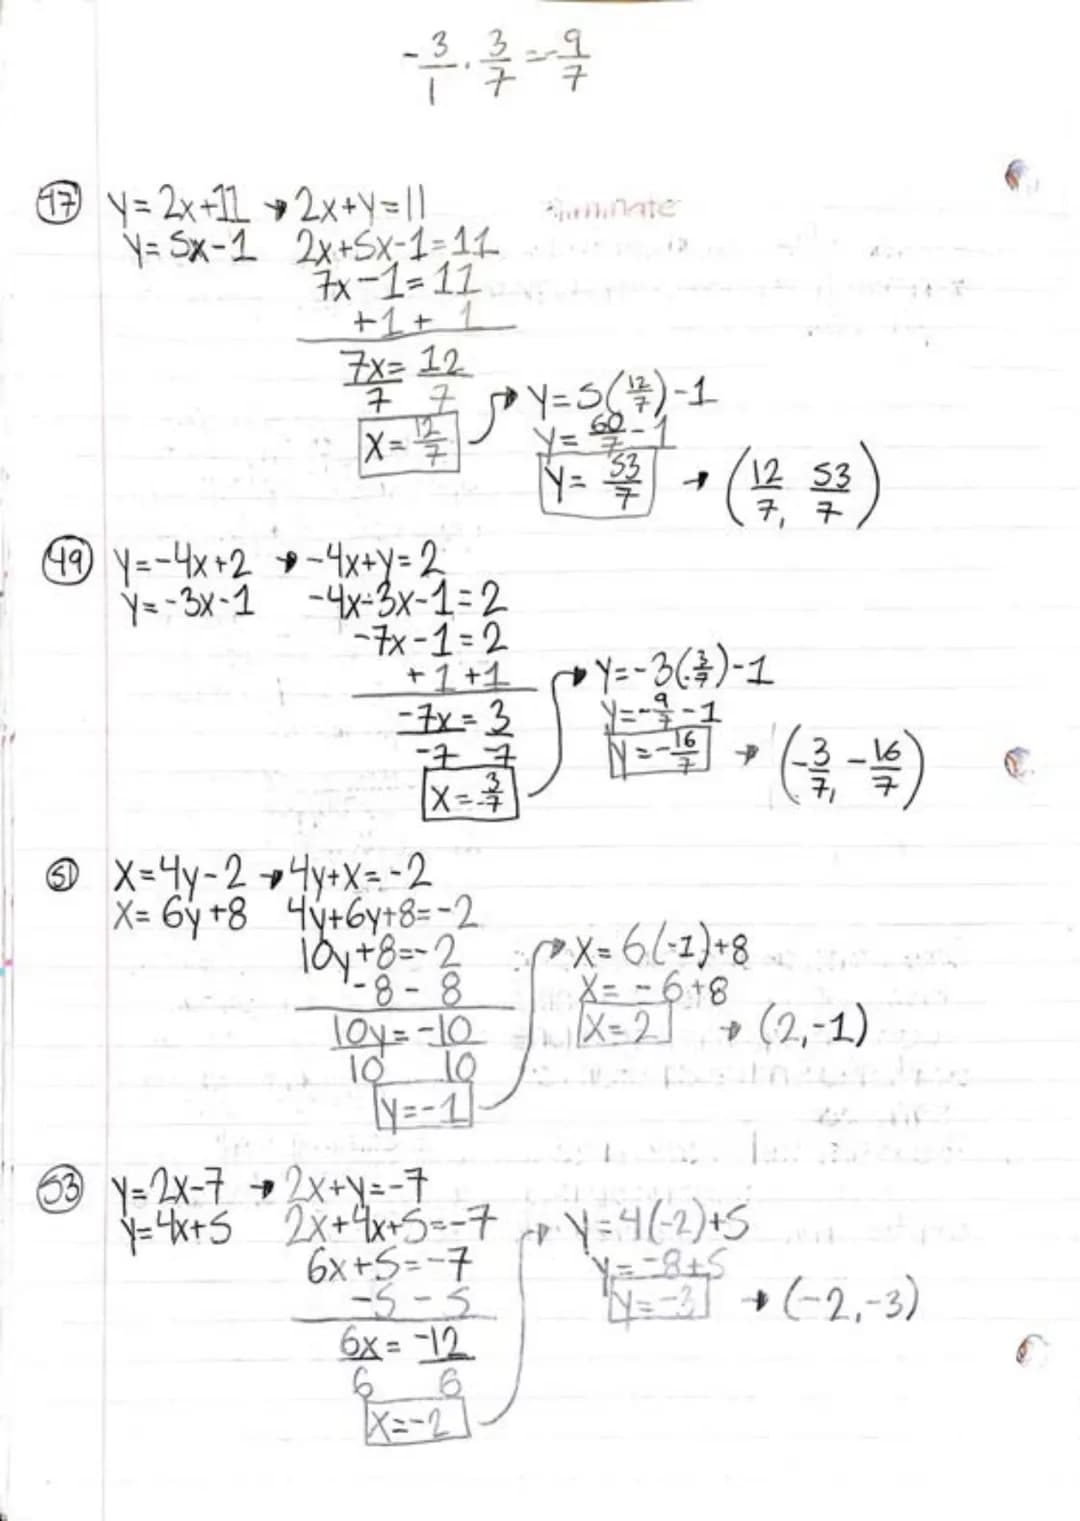 -3/1 · 3/7 = -9/7
47 y=2x+11 → 2x+y=11
y=5x-1 2x+5x-1=11
7x-1=11
+1+1
7x=12
7 7
x=12/7
y=5(12/7)-1
y=60/7-1
y=53/7 → (12/7, 53/7)
49 y=-4x+2 → -4x+y=2
y=-3x-1 -4x-3x-1=2
-7x-1=2
+1+1
-7x=3
-7 -7
x=-3/7
y=-3(-3/7)-1
y=-9/7-1
y=-16/7 → (-3/7, -16/7)
51 x=4y-2 → 4y+x=-2
x=6y+8 4y+6y+8=-2
10y+8=-2
-8-8
10y=-10
10 10
y=-1
x=6(-1)+8
x=-6+8
x=2 → (2,-1)
53 y=2x-7 → 2x+y=-7
y=4x+5 2x+4x+5=-7
6x+5=-7
-5-5
6x=-12
6 6
x=-2
y=4(-2)+5
y=-8+5
y=-3 → (-2,-3)